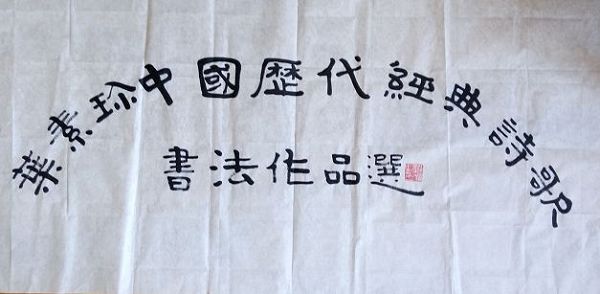 葉素珍中國歷代經典詩歌
書法作品選